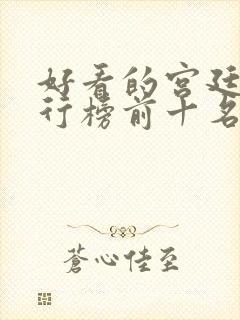 好看的宫廷
行榜前十名
蒼心佳至